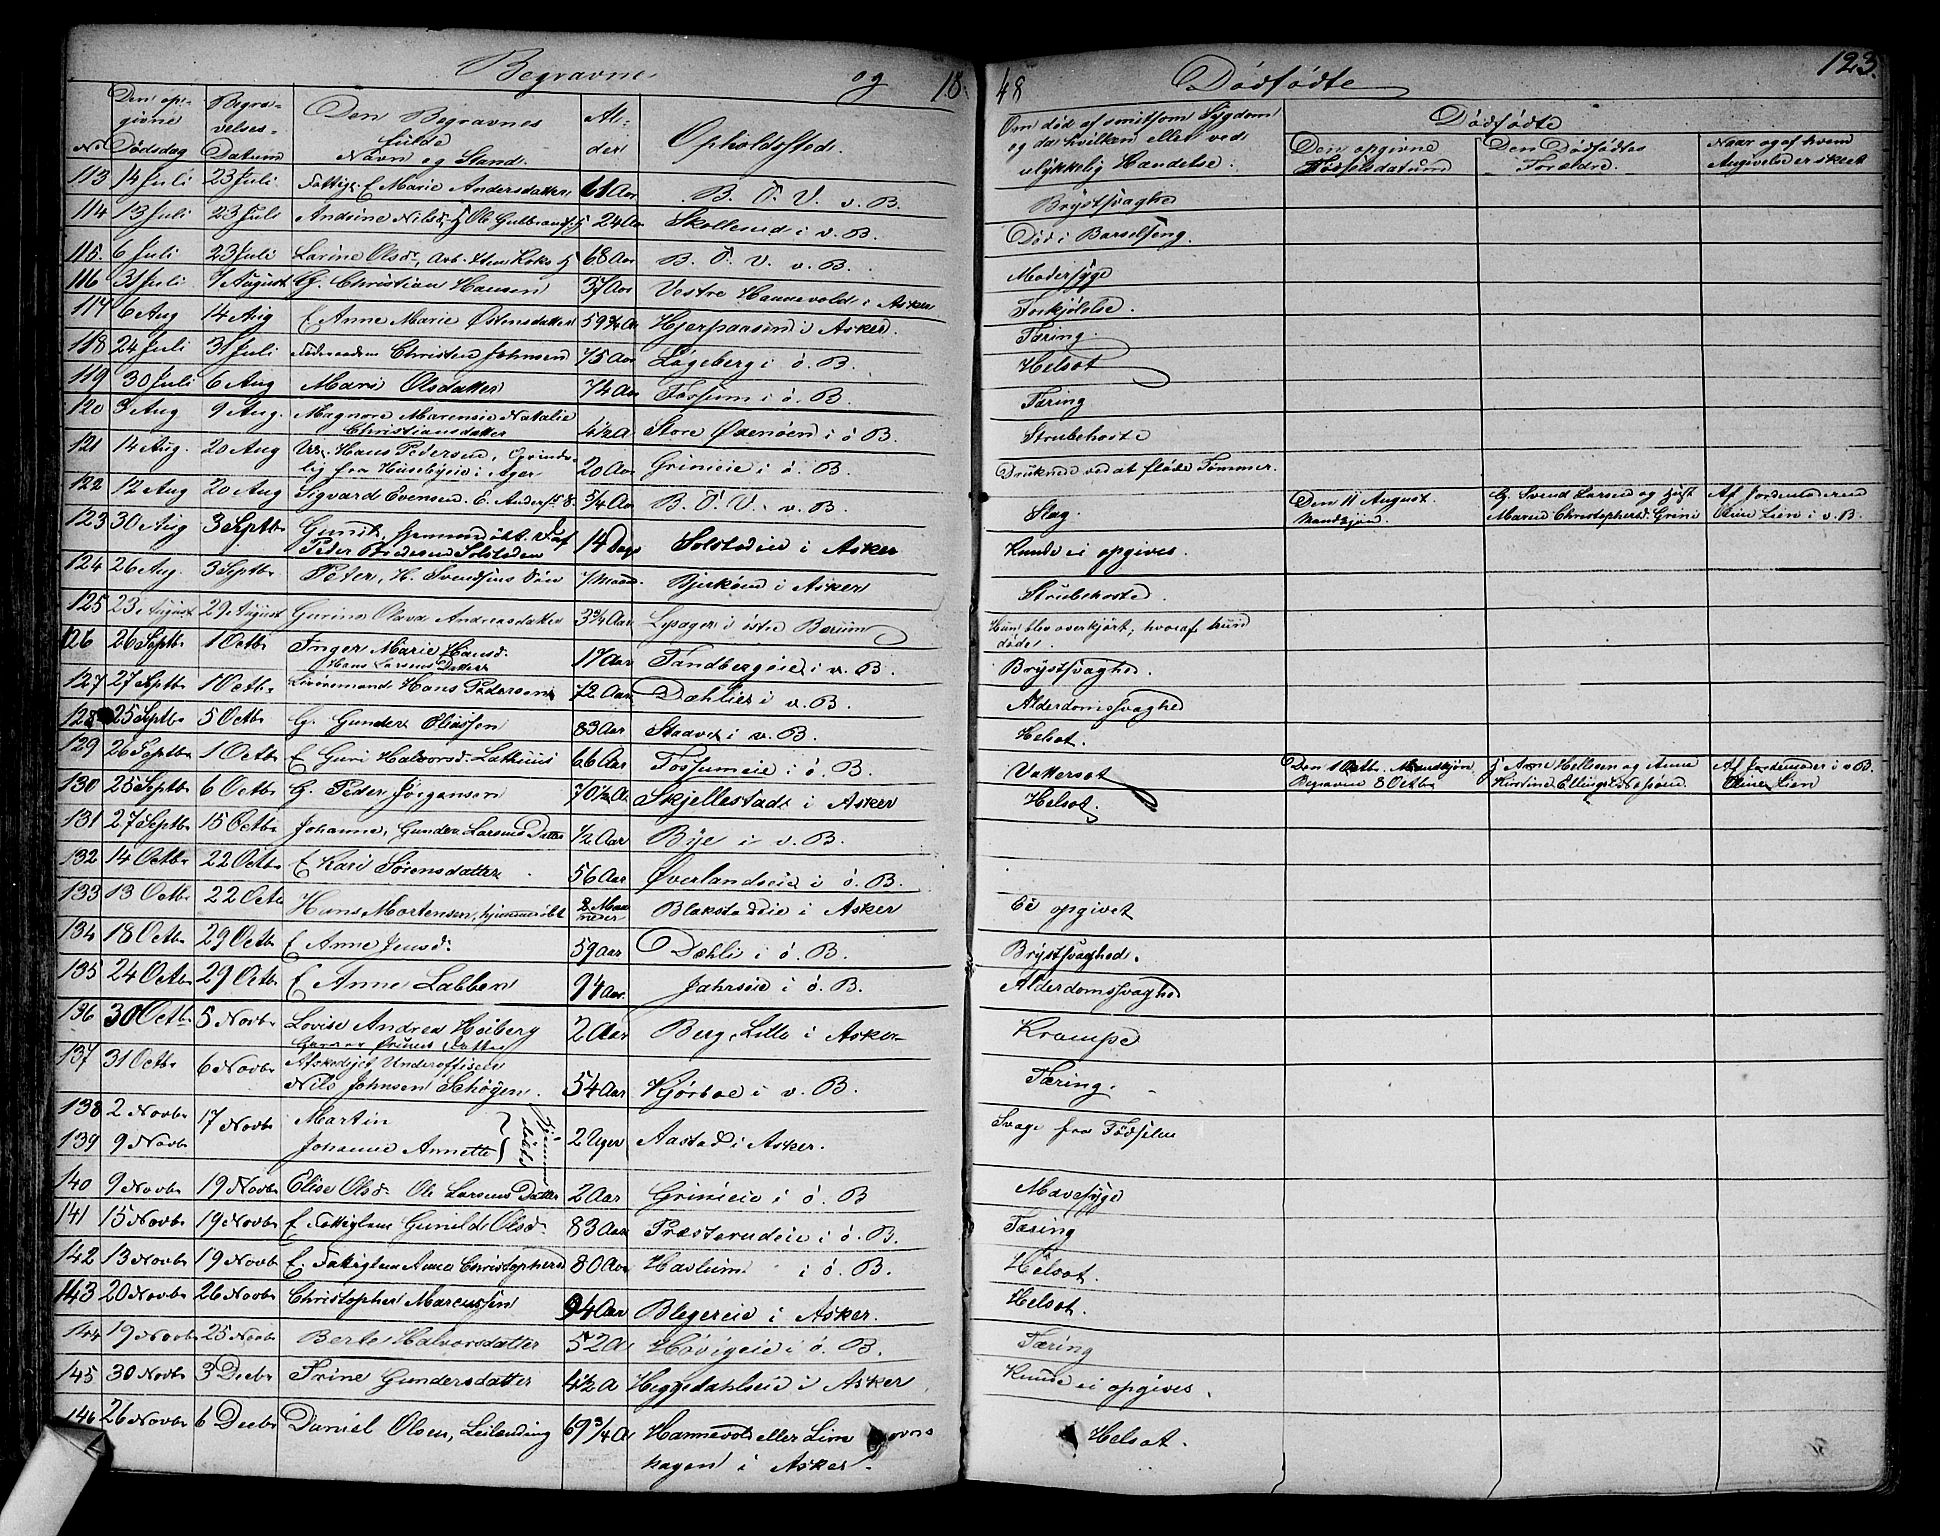 Begravne og 18
48 Dødfødte 123.
No
Den opgivne Dødsdag
Begravelses-Datum
Den Begravnes fulde Navn og Stand.
Alder
Opholdssted.
Om død af smitsom Sygdom og da hvilken eller ved ulykkelig Hændelse.
Dødfødte
Den opgivne Fødselsdatum
Den Dødfødtes Forældre.
Naar og af hvem Angivelse er skeet
113 14 Juli 23 Juli Marie Andersdatter 61 Aar B. Ö. V. v. B. Brystsvaghed
114 13 Juli 23 Juli Andrine Nilsd. 24 Aar Skollerud i v. B. Død i Barselseng.
115. 6 Juli 23 Juli Larine Olsd. 68 Aar B. Ö. V. v. B. Modersyge
116 31 Juli 7 August G. Christian Hansen 57 Aar Vestre Hannevold i Asker Forkjølelse.
117 6 Aug 14 Aug E. Anne Marie Østensdatter 59 3/4 A Hjerpaasen i Asker. Tæring.
118 24 Juli 31 Juli Føderaadsm Christen Johnsen 75 Aar Løgeberg i ö. B. Helsot
119 30 Juli 6 Aug Mari Olsdatter 74 Aar Fossum i ö. B. Tæring
120 3 Aug 9 Aug. Magnore Marensie Natalie
Christiansdatter 4 1/2 A. Store Ødenøen i ö B. Strubehoste
121 14 Aug. 20 Aug Hans Pedersen, Oprinde-
lig fra Husebyeie i Ager 20 Aar Grinieie i ö. B. Druknede ved at fløde Tømmer.
122 12 Aug 20 Aug Sigvard Evensen 5/4 Aar B. Ö. V. v. B. Slag Den 11 August. G. Svend Larsen og Hust Af Jordemoderen
Marie Christophersd. Grini Lien i v. B.
123 30 Aug 3 Septbr
Peder Pedersen Solstaden 14 Dage Solstadeie i Asker Kunde ei opgives.
124 26 Aug. 3 Septbr Peter, H. Svendsens Søn 7 Maan. Bjerkøen i Asker Strubehoste.
125 23 August 29 August Gurine Olava Andreasdatter 3 3/4 Aar Lysager i østre Bærum Hun blev overkjørt, hvoraf hun døde.
126 26 Septbr 1 Octbr Inger Marie Hansd.
Hans Larsens Datter 17 Aar Tandbergeie i v. B. Brystsvaghed.
127 27 Septbr 1 Octbr Hans Pedersen 72 Aar Dæhlie i v. B. Alderdomssvaghed
128 25 Septbr 5 Octbr G. Gunder Eliassen 83 Aar Staavi i v. B. Helsot.
129 26 Septbr 1 Octbr E Guri Halvorsd. Lathuus 66 Aar Fossumeie i ö. B. Vattersot Den 1 Octbr. Af Jordemoder i v B.
Begraven 8 Octbr Lien
130 25 Septbr 6 Octbr G. Peder Jørgensen 70 1/2 A Skjellestad i Asker Helsot.
131 27 Septbr 15 Octbr Johanne, Gunder Larsens Datter 1/2 Aar Bye i v. B.
132 14 Octbr 22 Octbr E Kari Sørensdatter 56 Aar Øverlandseie i ö. B.
133 13 Octbr 22 Octbr Hans Mortensen, hjemmedøbt 2 Maaneder Blakstadeie i Asker Ei opgivet
134 18 Octbr 29 Octbr E Anne Jensd. 59 Aar Dæhli i ö. B. Brystsvaghed.
135 24 Octbr 29 Octbr E Anne Labben 94 Aar. Jahrseie i ö. B. Alderdomssvaghed
136 30 Octb. 5 Novbr Lovise Andrea Høiberg 2 Aar Berg, Lille i Asker Krampe
137 31 Octbr 6 Novbr Afskediget Underofficeer
Nils Johnsen Schøyen 54 Aar Kjørboe i v. B. Tæring.
138 2 Novbr 17 Novbr Martin
139 9 Novbr Johanne Annette hjemmedøbt 2 Uger Aastad i Asker. Svage fra Fødselen
140 9 Novbr 19 Novbr Elise Olsd. Ole Larsens Datter 2 Aar Grinieie i ö. B Mavesyge
141 15 Novbr 19 Novbr E Fattiglem Gunild Olsd. 83 Aar Præsterudeie i ö. B. Tæring
142 13 Novbr 19 Novbr E. Fattiglem Anne Christophersd 80 Aar Haslum i ö. B. Helsot.
143 20 Novbr 26 Novbr Christopher Marcussen 94 Aar Blegereie i Asker. Helsot.
144 19 Novbr 25 Novbr Berte Halvorsdatter 52 A Høvigeie i ö. B. Tæring
145 30 Novbr 3 Decbr Trine Gundersdatter 4 1/2 A Heggedahlseie i Asker Kunde ei opgives.
146 26 Novbr 6 Decbr Daniel Olsen, Leilending 69 3/4 A Hannevold eller Lien
hagen i Asker. Helsot.